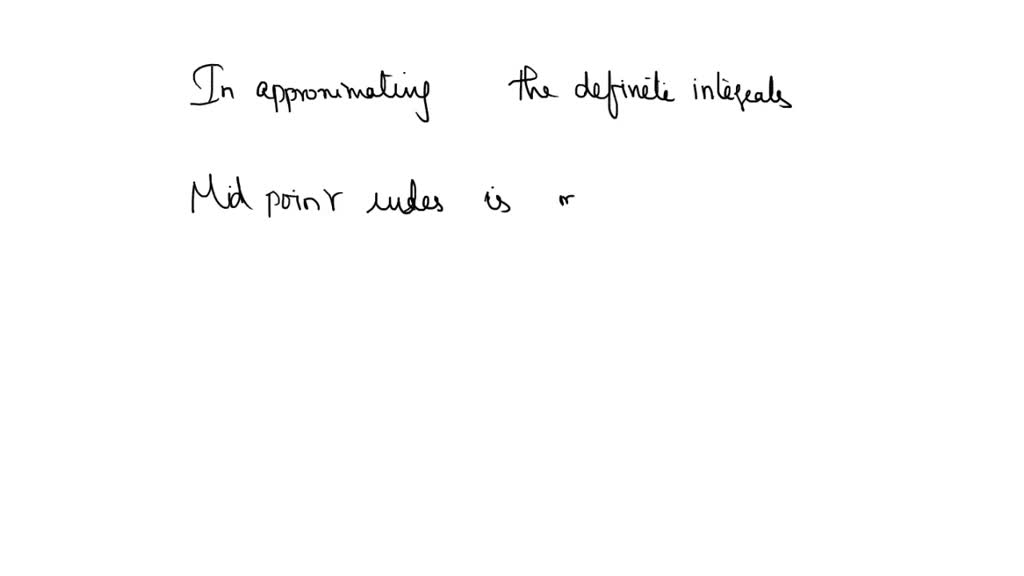 In approximating the definite integrals
Mid point rules is